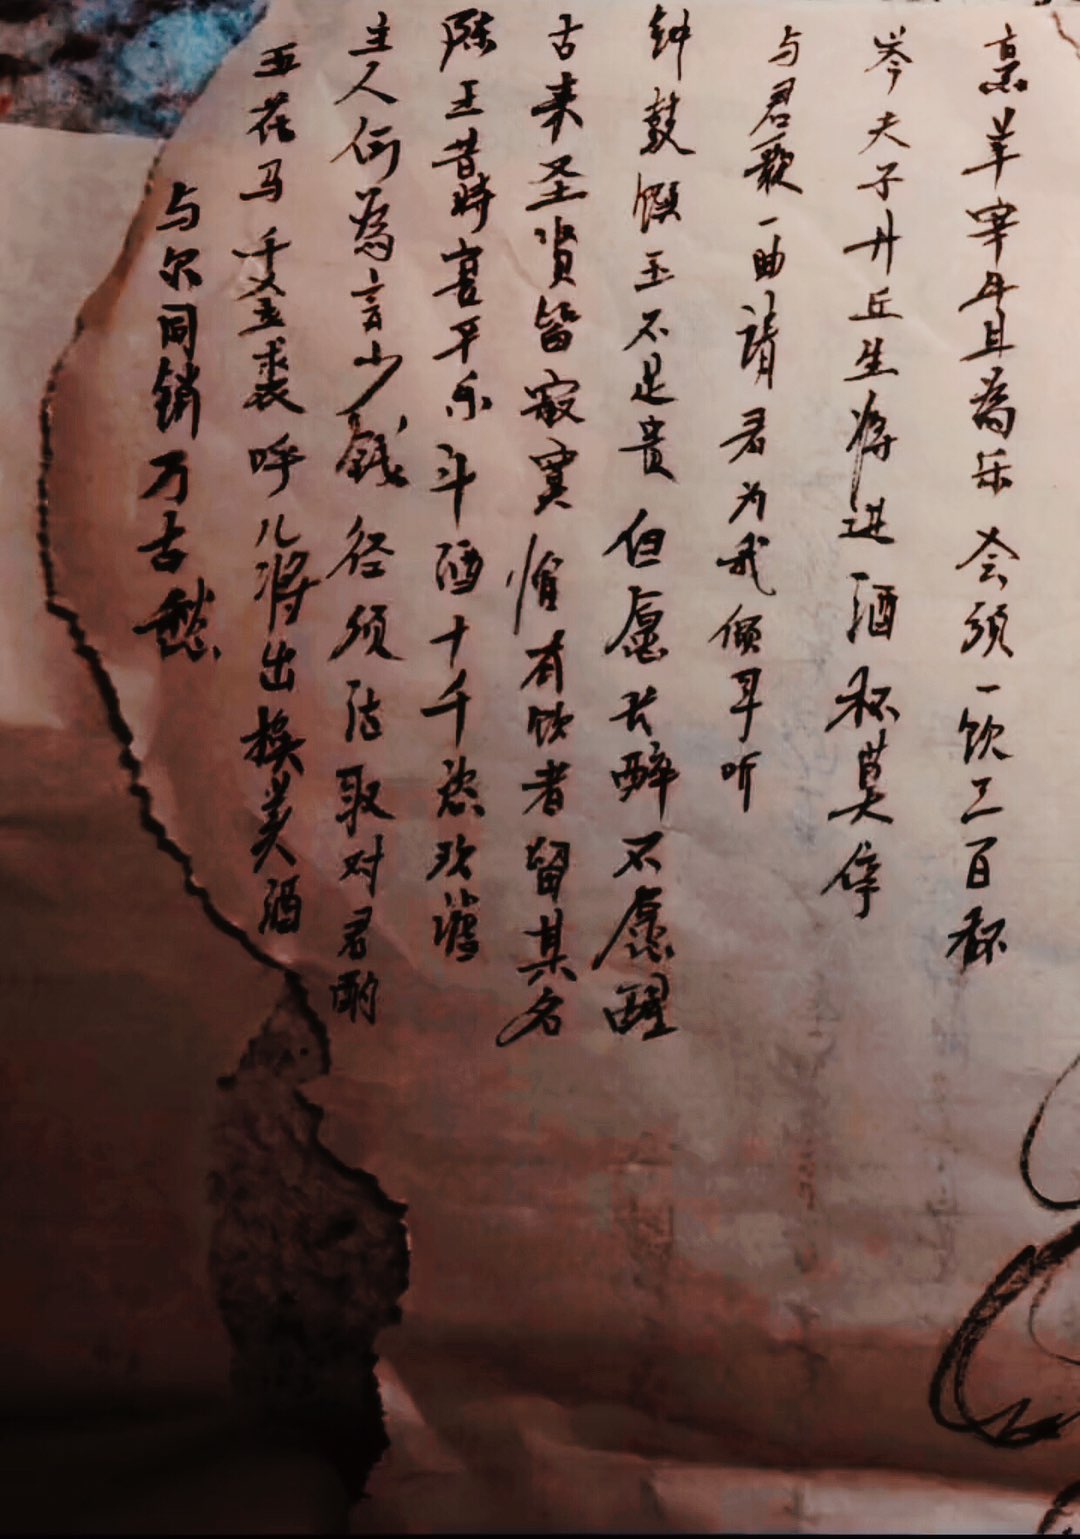 烹羊宰牛且为乐会须一饮三百杯
岑夫子丹丘生将进酒杯莫停
与君歌一曲请君为我倾耳听
钟鼓馔玉不足贵但愿长醉不愿醒
古来圣贤皆寂寞惟有饮者留其名
陈王昔時宴平乐斗酒十千恣欢谑
主人何為言少钱径须沽取对君酌
五花马千金裘呼儿将出换美酒
与尔同销万古愁